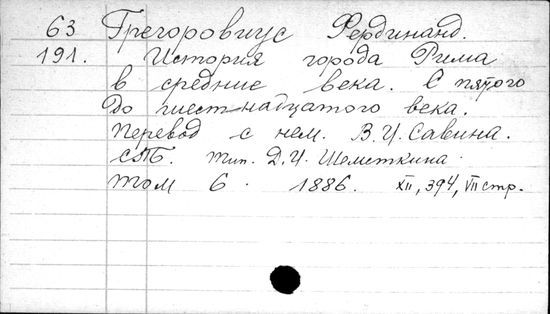 63 Грегоровиус Фердинанд.
191. История города Рима
в средние века. С пятого
до шестнадцатого века.
Перевод с нем. В.И. Савина.
СПБ. тип. Д.И. Шеметкина
том 6. 1886. XII, 394, VII стр.